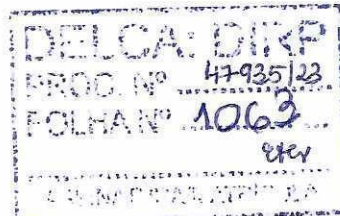 DELCA: DIRP
PROC. Nº 47935/23
FOLHA Nº 1063